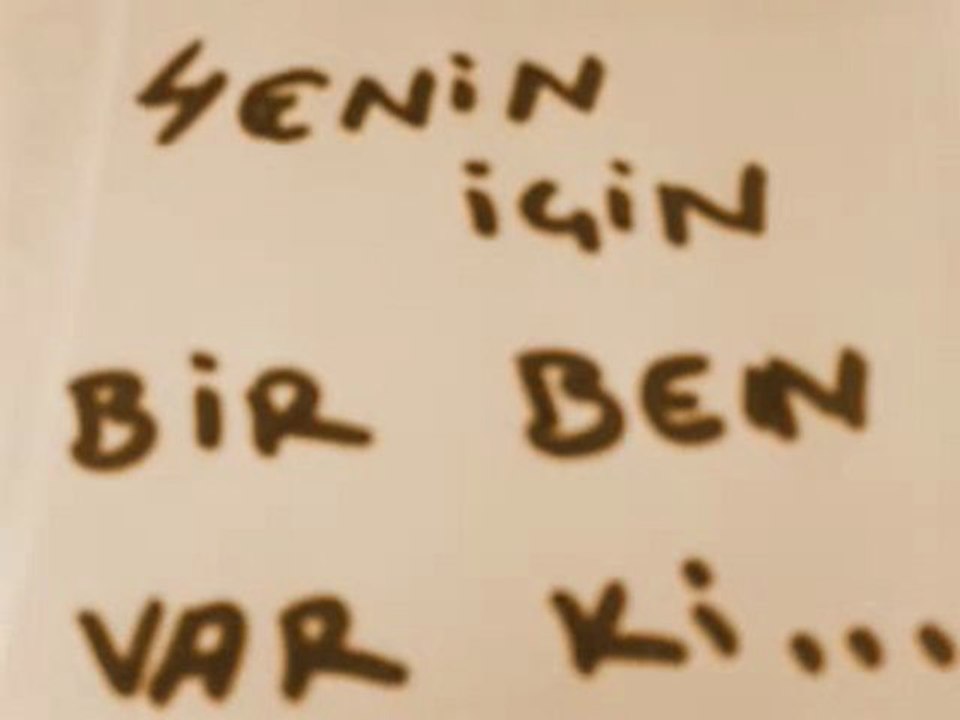 SENİN
İÇİN
BİR BEN
VAR Kİ...